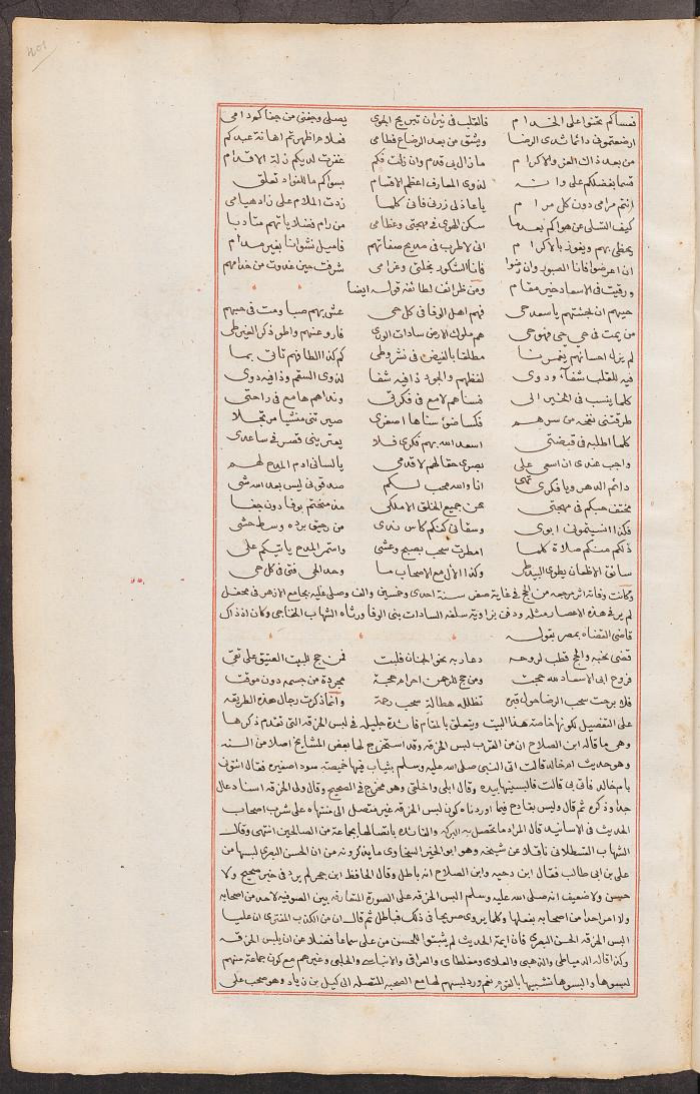 401
فعساكم تحنوا على الخدام فالقلب في نيران تبريح الجوى يصلى وجفني من جفاكم دامي
ارضعتموني دائما ثدي الرضا ويشق من بعد الرضاع فطامي فعلام اظهرتم اهانة عبدكم
من بعد ذاك العز والاكرام ما زال بي قدم وان زلت فكم غفرت لديكم زلة الاقدام
قسما بفضلكم على وانه لذوي المعارف اعظم الاقسام بسواكم ما للفؤاد تعلق
انتم مرامي دون كل مرام يا عاذلي زرني فاني كلما زدت الملام على زاد هيامي
كيف التسلي عن هواكم بعدما سكن الهوى في مهجتي وعظامي من رام فضلا ياتهم متادبا
يحظى بهم ويفوز بالاكرام اني لاطرب في مديح صفاتهم فاميل نشوانا بغير مدام
ان اعرضوا فانا الصبور وان رضوا فانا الشكور بخلتي وغرامي شرفت حين غدوت من خدامهم
ورقيت في الاسعاد خير مقام ومن ظرائف لطائفه قوله ايضا
حيهم ان جئتهم يا سعد حي فهم اهل الوفا في كل حي عش بهم صبا ومت في حبهم
من يمت في حي حي فهو حي هم ملوك الارض سادات الورى فارو عنهم واطو ذكر الغير طي
لم يزل احسانهم يغمرنا مطلقا بالفيض في نشر وطي كم كذا اللطافهم تاتي بما
فيه للقلب شفاء ودوي لفظهم والجود ذا فيه شفا لذوي السقم وذا فيه دوي
كلما ينسب في الحسن الى فسناهم لامع في فكرتي ونداهم هامع في راحتي
طرقتني نفحة من سرهم فكسا ضوء سناها اصغري صيرتني منشيا مرتجلا
كلما اطلبه في قبضتي اسعد الله بهم فكري فلا يعتريني قصر في ساعدي
واجب عندي ان اسعى على بصري حقا لهم لا قدمي يا لساني ادم المدح لهم
دائم الدهر ويا فكري تهي انا والله محب لكم صدقوني ليس بعد الله شي
مختف حبكم في مهجتي عن جميع الخلق الا ملكي من منحتم بوفا دون جفا
فكذا انسيتموني ابوي وسقاني كنكم كاس ندى من رحيق برده وسط حشي
ذلكم منكم صلاة كلما امطرت سحب بصبح وعشي واستمر المدح ياتيكم على
سائق الاظعان يطوي البيد طي وكذا الآل مع الاصحاب ما وحد الحي فتى في كل حي
وكانت وفاته اثر مرجعه من الحج في غاية صفر سنة احدى وخمسين والف وصلى عليه بجامع الازهر في محفل
لم ير في هذه الاعصار مثله ودفن بزاوية سلفه السادات بني الوفا ورثاه الشهاب الخفاجي وكان اذ ذاك
قاضي القضاة بمصر بقوله
قضى نحبه والحج قطب لروحه دعا ربه نحو الجنان فلبت فمن حج للبيت العتيق على تقى
فروح ابي الاسعاد لله حجت ومن حج للرحمن احرام حجة مجردة من جسمه دون موقت
فلا برحت سحب الرضا حول قبره تظلله هطالة سحب رحمة وانما ذكرت رجال هذه الطريقه
على التفصيل لكونها خاصة هذا البيت ويتعلق بالمقام فائدة جليله في لبس الخرقه التي تقدم ذكرها
وهي ما قاله ابن الصلاح ان من القرب لبس الخرقه وقد استخرج لها بعض المشايخ اصلا من السنه
وهو حديث ام خالد قالت اتي النبي صلى الله عليه وسلم بثياب فيها خميصة سودا صغيره فقال ائتوني
بام خالد فاتي بي قالت فالبسنيها بيده وقال ابلي واخلقي وهو مخرج في الصحيح وقال ولي في الخرقه اسناد عال
جدا وذكره ثم قال وليس بقادح فيما اوردناه كون لبس الخرقه غير متصل الى منتهاه على شرب اصحاب
الحديث في الاسانيد قال المراد ما يحصل به البركه والفائدة باتصالها بجماعة من الصالحين انتهى وقال
الشهاب القسطلاني ناقلا عن شيخه وهو ابو الخير السخاوي ما يذكرونه من ان الحسن البصري لبسها من
علي بن ابي طالب فقال ابن دحيه وابن الصلاح انه باطل وقال الحافظ ابن حجر لم يرد في خبر صحيح ولا
حسن ولا ضعيف انه صلى الله عليه وسلم البس الخرقه على الصورة المتعارفه بين الصوفيه لاحد من اصحابه
ولا امر احدا من اصحابه بفعلها وكلما يروى صريحا في ذلك فباطل ثم قال ان من الكذب المفتري ان عليا
البس الخرقه الحسن البصري فان ايمة الحديث لم يثبتوا للحسن من علي سماعا فضلا عن ان يلبس الخرقه
وكذا قاله الدمياطي والذهبي والعلاي ومغلطاي والعراقي والانباسي والحلبي وغيرهم مع كون جماعة منهم
لبسوها والبسوها تشبيها بالقوم نعم ورد لبسهم لها مع الصحبه المتصله الى كميل بن زياد وهو صحب علي